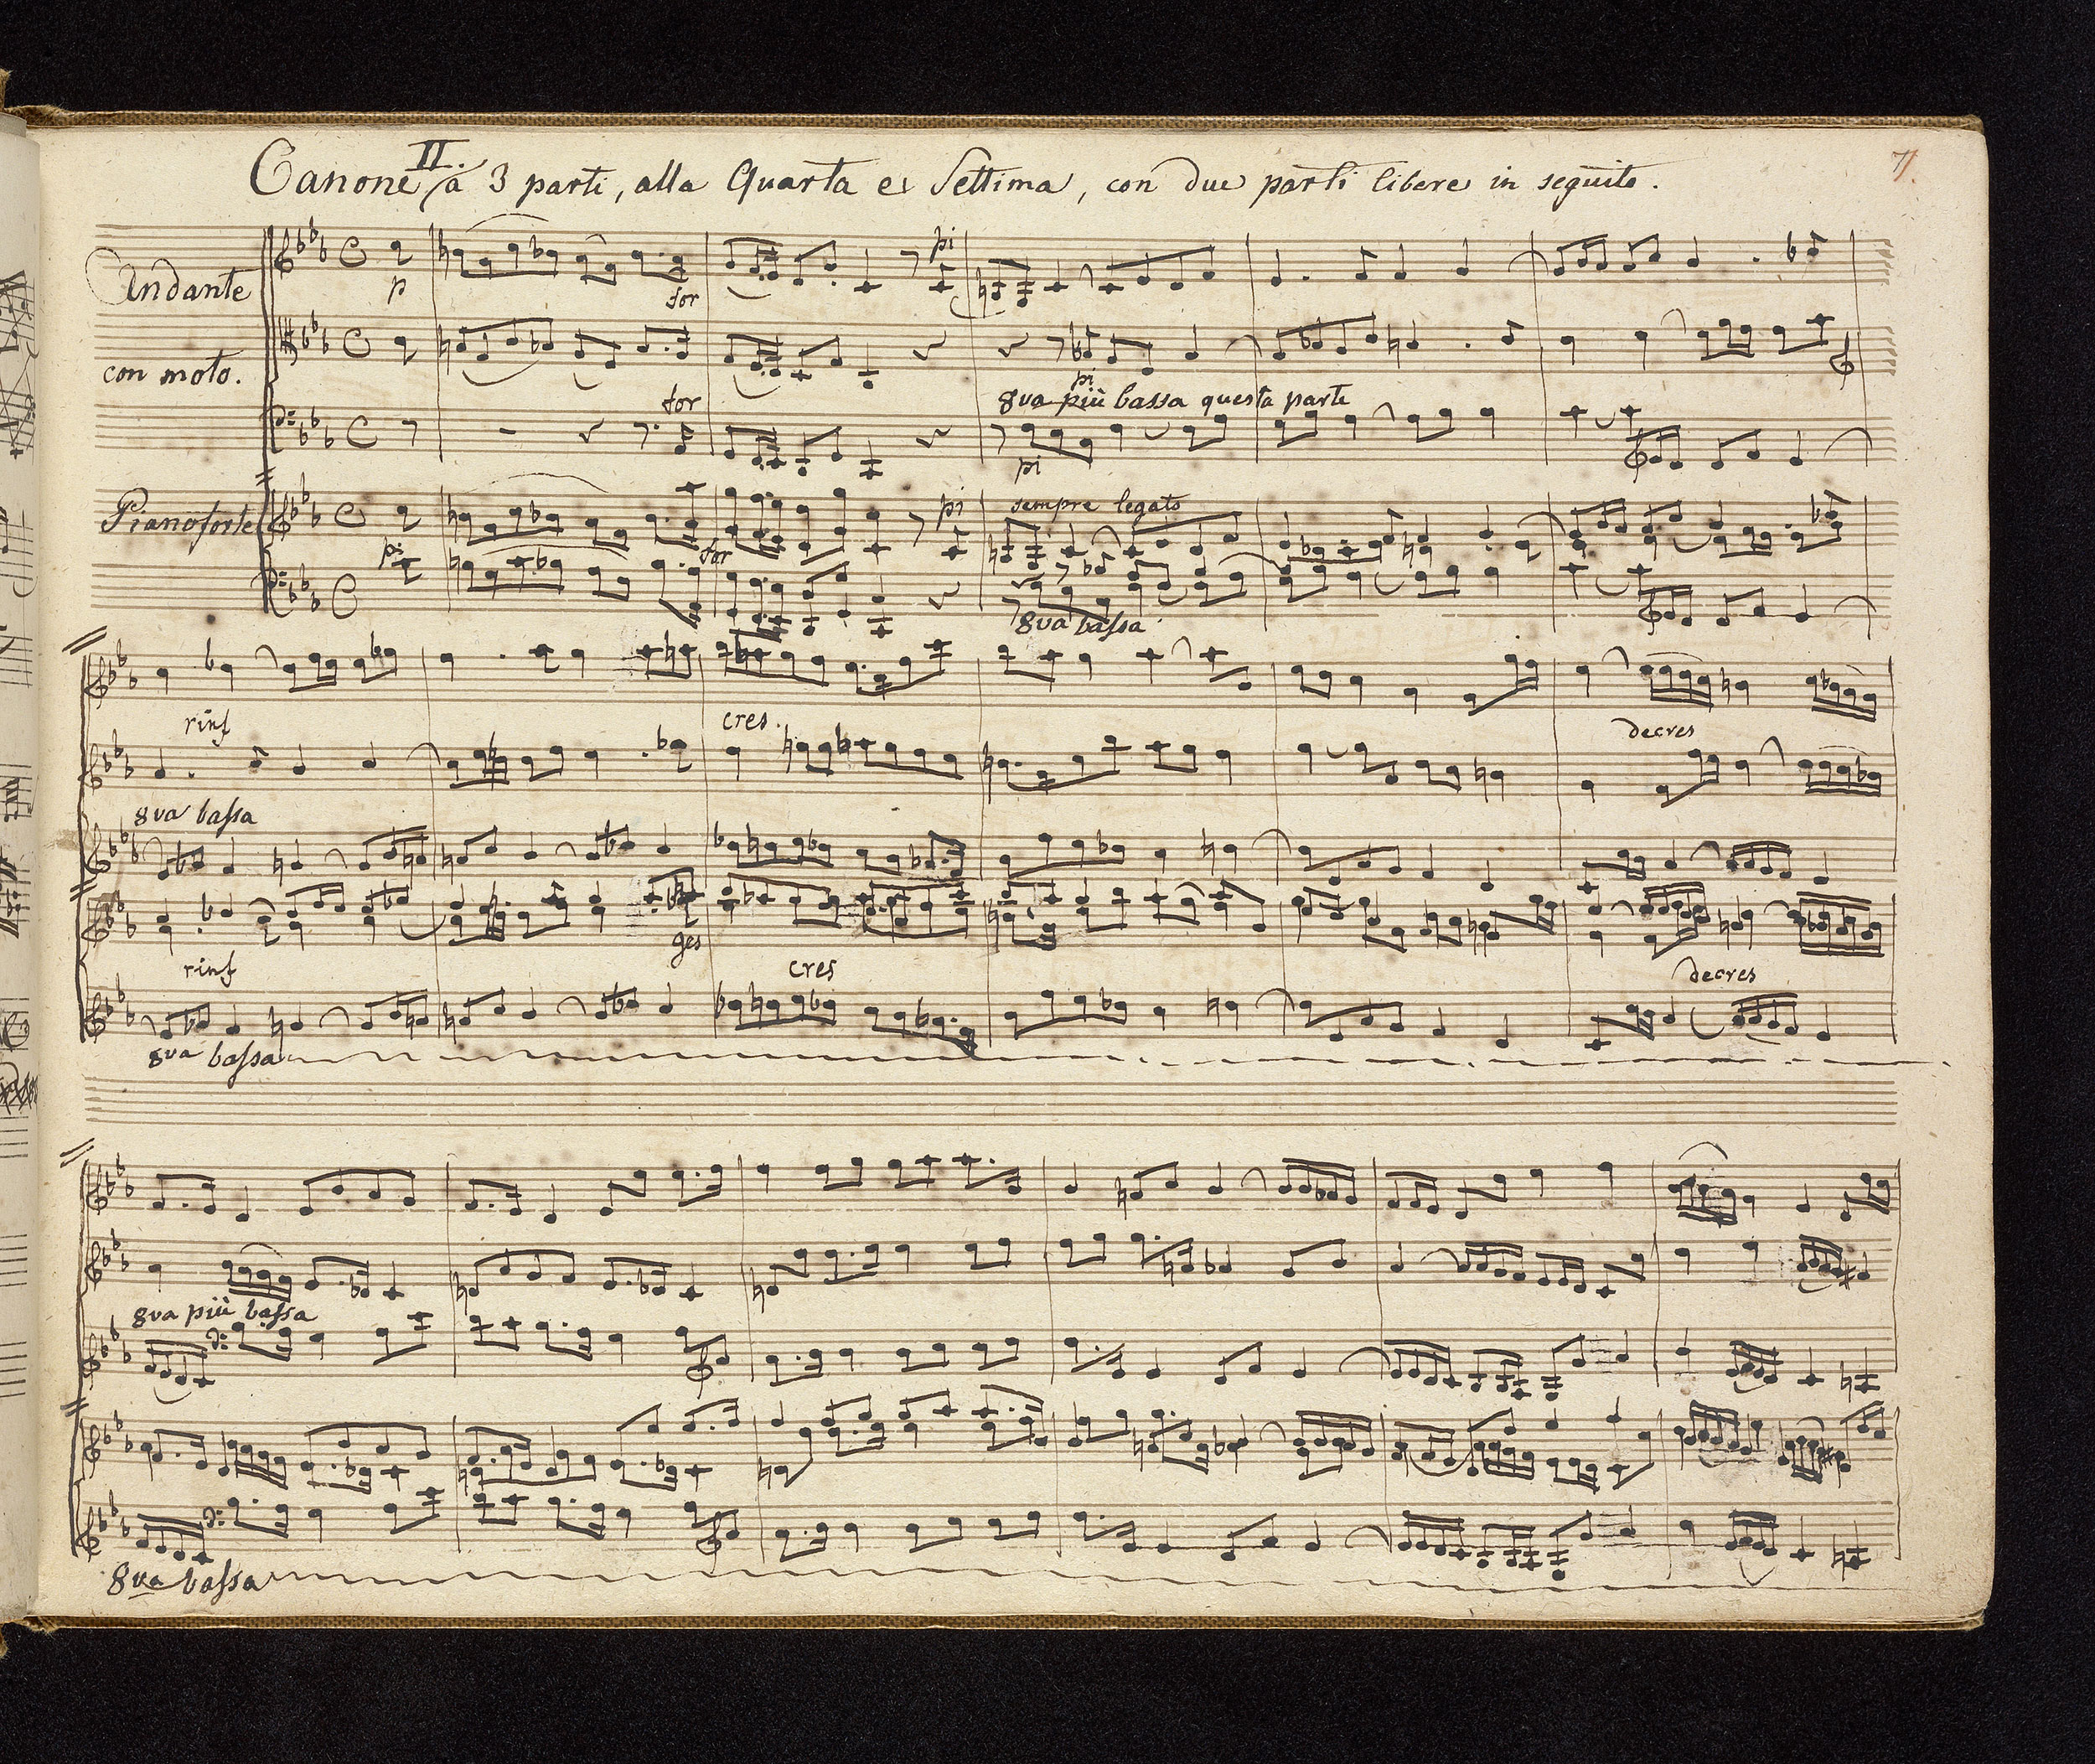 II.
Canone à 3 parti, alla Quarta e Settima, con due parti libere in seguito.
71.
Andante
con moto.
p
for
pi
for
pi
8va più bassa questa parte
pi
Pianoforte
pi
for
pi
sempre legato
8va bassa
rinf
cres.
decres
8va bassa
rinf
ges
cres
decres
8va bassa
8va più bassa
8va bassa